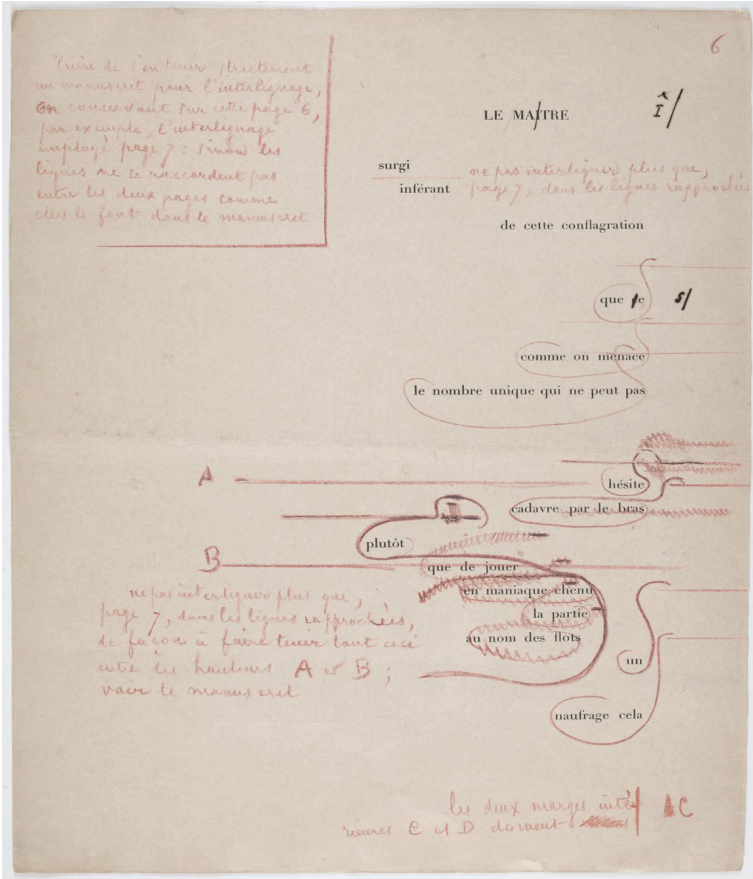 6
Prière de s'en tenir strictement
au manuscrit pour l'interlignage,
en conservant sur cette page 6,
par exemple, l'interlignage
employé page 7 : sinon les
lignes ne se raccordent pas
entre les deux pages comme
elles le font dans le manuscrit
LE MAITRE Î/
surgi
ne pas interligner plus que,
inférant page 7, dans les lignes rapprochées
de cette conflagration
que le s/
comme on menace
le nombre unique qui ne peut pas
A
hésite
cadavre par le bras
plutôt
B
que de jouer
en maniaque chenu
la partie
au nom des flots
ne pas interligner plus que,
page 7, dans les lignes rapprochées,
de façon à faire tenir tout ceci
entre les hauteurs A et B ;
voir le manuscrit
un
naufrage cela
les deux marges inté
rieures C et D doivent
AC